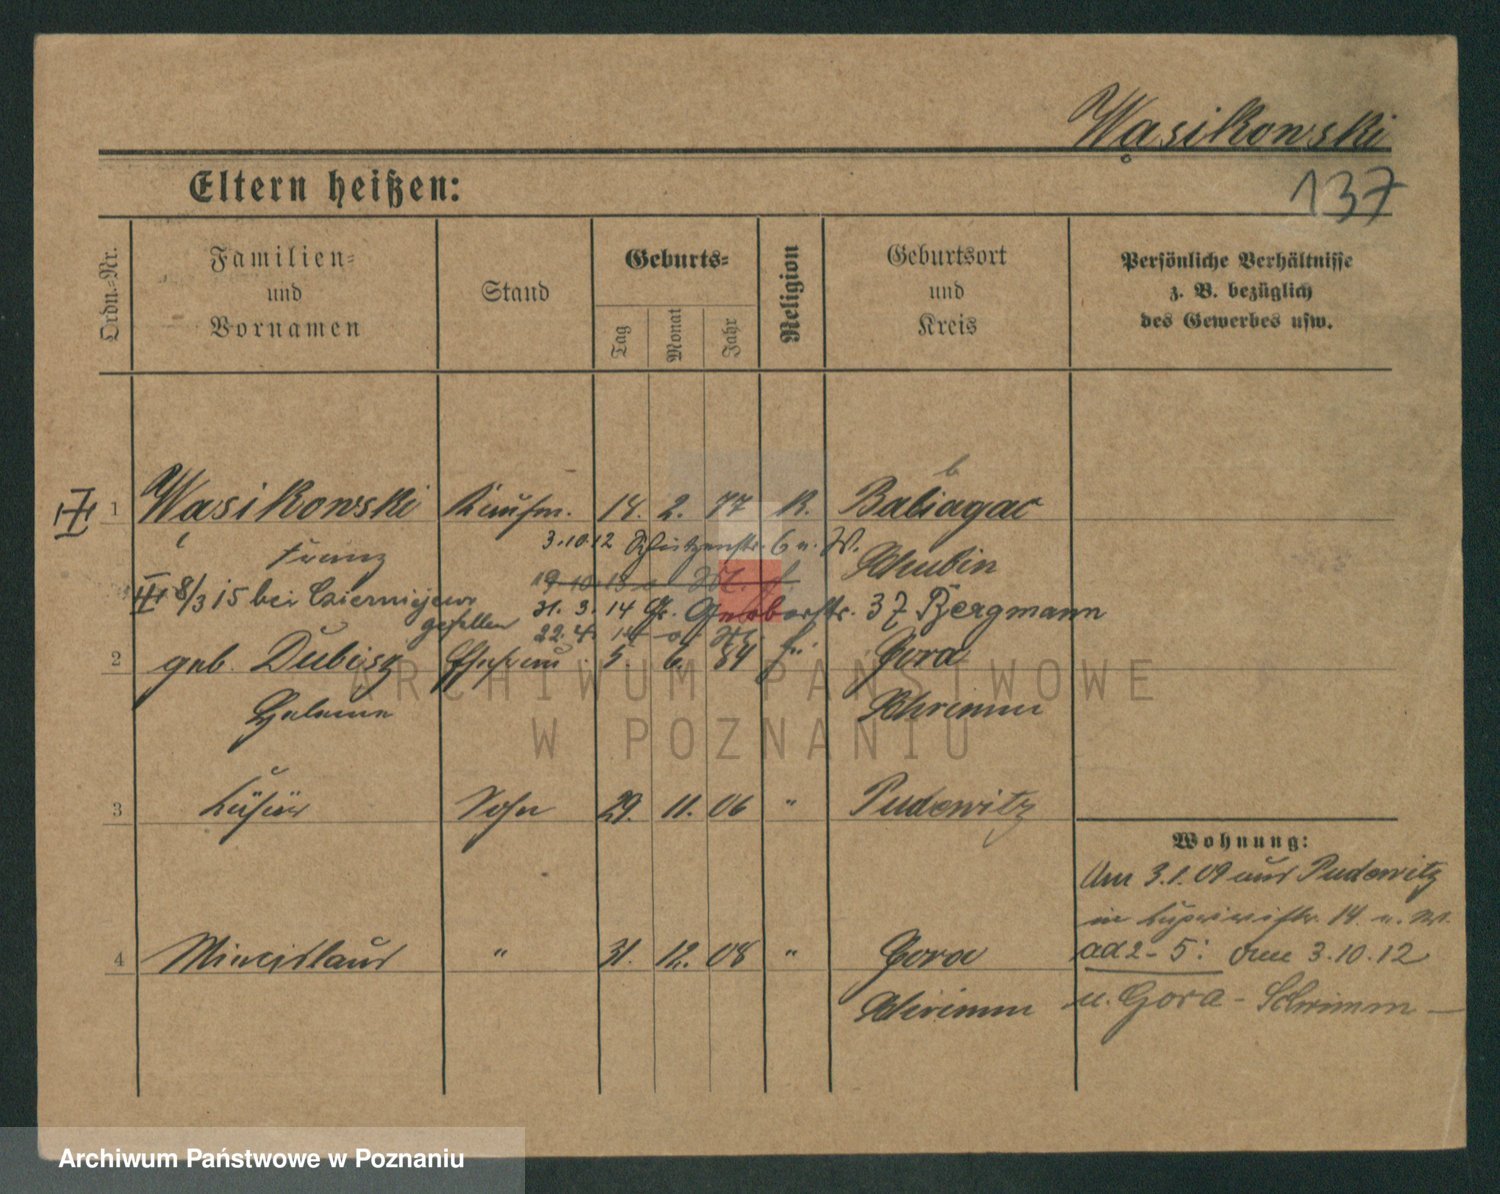 Wąsikowski
137
Eltern heißen:
Ordn.-Nr.
Familien-
und
Vornamen
Stand
Geburts-
Tag
Monat
Jahr
Religion
Geburtsort
und
Kreis
Persönliche Verhältnisse
z. B. bezüglich
des Gewerbes usw.
1 Wąsikowski Kaufm. 14. 2. 77 K.
Franz
3.10.12 Schützenstr. 6 a. W.
Schubin
8/3 15 bei Czierniejewo
gefallen
31. 3. 14 Gr. Gerberstr. 37 Bergmann
22. 4. 14
2 geb. Dubisz Ehefrau 5. 6. 84 Gora
Helene Schrimm
3 Sohn 29. 11. 06 " Pudewitz
Wohnung:
Am 3.1.09 aus Pudewitz
14
4 " 31. 12. 08 " Gora
ad 2-5: am 3.10.12
Schrimm
n. Gora - Schrimm -
ARCHIWUM PAŃSTWOWE
W POZNANIU
Archiwum Państwowe w Poznaniu